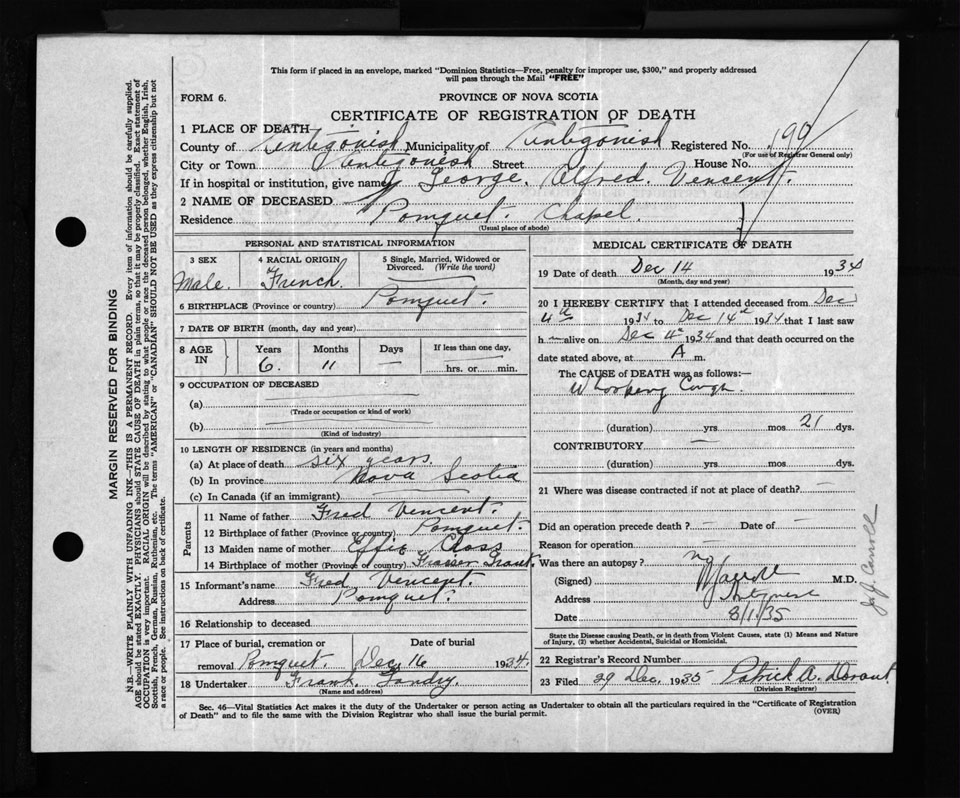 This form if placed in an envelope, marked "Dominion Statistics—Free, penalty for improper use, $300," and properly addressed
will pass through the Mail "FREE"
FORM 6.
PROVINCE OF NOVA SCOTIA
CERTIFICATE OF REGISTRATION OF DEATH
1 PLACE OF DEATH
County of Antigonish Municipality of Antigonish Registered No. 190
(For use of Registrar General only)
City or Town Antigonish Street House No.
If in hospital or institution, give name
2 NAME OF DECEASED George. Alfred. Vencent.
Residence Pomquet. Chapel.
(Usual place of abode)
PERSONAL AND STATISTICAL INFORMATION
3 SEX Male. 4 RACIAL ORIGIN French. 5 Single, Married, Widowed or Divorced. (Write the word)
6 BIRTHPLACE (Province or country) Pomquet.
7 DATE OF BIRTH (month, day and year)
8 AGE IN Years 6. Months 11 Days — If less than one day, hrs. or min.
9 OCCUPATION OF DECEASED
(a)
(Trade or occupation or kind of work)
(b)
(Kind of industry)
10 LENGTH OF RESIDENCE (in years and months)
(a) At place of death six years
(b) In province Nova Scotia
(c) In Canada (if an immigrant)
Parents
11 Name of father Fred Vencent.
12 Birthplace of father (Province or country) Pomquet.
13 Maiden name of mother Effie
14 Birthplace of mother (Province or country) Frasser Grant.
15 Informant's name Fred Vencent.
Address Pomquet.
16 Relationship to deceased
17 Place of burial, cremation or removal Pomquet. Date of burial Dec 16 1934.
18 Undertaker Frank Landry.
(Name and address)
MEDICAL CERTIFICATE OF DEATH
19 Date of death Dec 14 1934
(Month, day and year)
20 I HEREBY CERTIFY that I attended deceased from Dec
4th 1934 to Dec 14th 1934 that I last saw
h alive on Dec 4th 1934 and that death occurred on the
date stated above, at A m.
The CAUSE of DEATH was as follows:—
Whooping Cough.
(duration) yrs mos 21 dys.
CONTRIBUTORY —
(duration) yrs mos dys.
21 Where was disease contracted if not at place of death? —
Did an operation precede death? — Date of —
Reason for operation —
Was there an autopsy? no
(Signed) M.D.
Address
Date 8/1/35
J. J. Carroll
State the Disease causing Death, or in death from Violent Causes, state (1) Means and Nature
of Injury, (2) whether Accidental, Suicidal or Homicidal.
22 Registrar's Record Number
23 Filed 29 Dec, 1935 Patrick A.
(Division Registrar)
Sec. 46—Vital Statistics Act makes it the duty of the Undertaker or person acting as Undertaker to obtain all the particulars required in the "Certificate of Registration
of Death" and to file the same with the Division Registrar who shall issue the burial permit.
(OVER)
MARGIN RESERVED FOR BINDING
N.B.—WRITE PLAINLY WITH UNFADING INK—THIS IS A PERMANENT RECORD. Every item of information should be carefully supplied.
AGE should be stated EXACTLY. PHYSICIANS should STATE CAUSE OF DEATH in plain terms, so that it may be properly classified. Exact statement of
OCCUPATION is very important. RACIAL ORIGIN will be described by stating to what people or race the deceased person belonged, whether English, Irish,
Scottish, French, German, Russian, Ruthenian, etc. The terms "AMERICAN" or "CANADIAN" SHOULD NOT BE USED as they express citizenship but not
a race or people. See instructions on back of certificate.